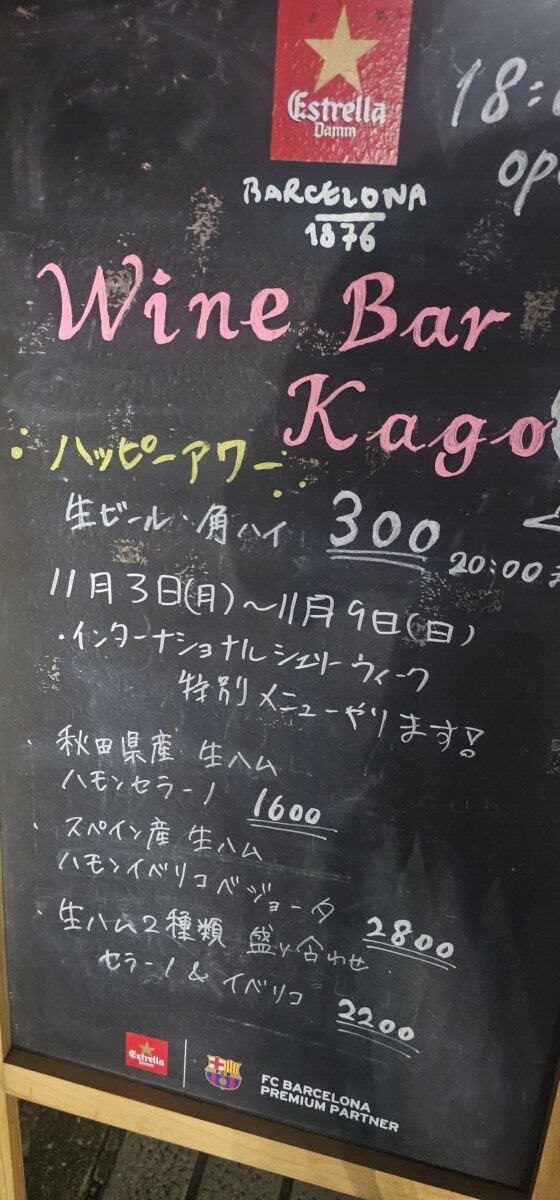 Estrella
Damm
18:
op
BARCELONA
1876
Wine Bar
Kago
ハッピーアワー
生ビール・角ハイ 300
20:00
11月3日(月)〜11月9日(日)
・インターナショナル シェリーウィーク
特別メニューやります!
・秋田県産 生ハム
ハモンセラーノ 1600
・スペイン産 生ハム
ハモンイベリコベジョータ 2800
・生ハム2種類 盛り合わせ
セラーノ & イベリコ 2200
Estrella
Damm
FC BARCELONA
PREMIUM PARTNER